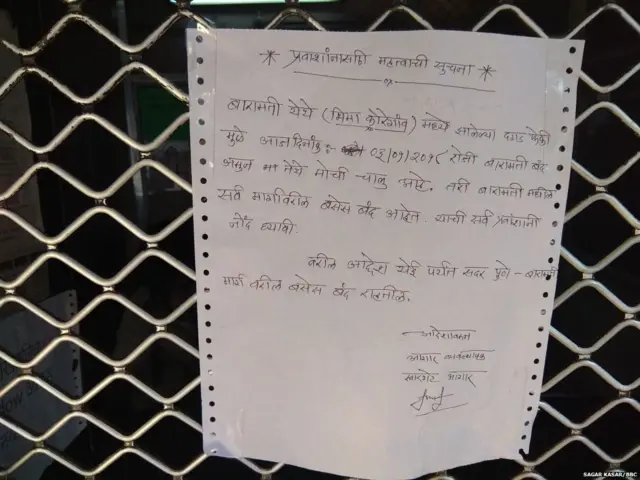 * प्रवाशांनासाठी महत्वाची सुचना *
बारामती येथे (भिमा कोरेगांव) मध्ये झालेल्या दगड फेकी
मुळे आज दिनांक :- 03/01/2018 रोजी बारामती बंद
असुन मा तेथे मोर्चा चालु आहे. तरी बारामती मधील
सर्व मार्गावरील बसेस बंद आहेत. याची सर्व प्रवाशांनी
नोंद घ्यावी.
वरील आदेश येई पर्यंत सदर पुणे - बारामती
मार्ग वरील बसेस बंद राहतील.
आदेशावरुन
आगार व्यवस्थापक
स्वारगेट आगार
SAGAR KASAR/BBC